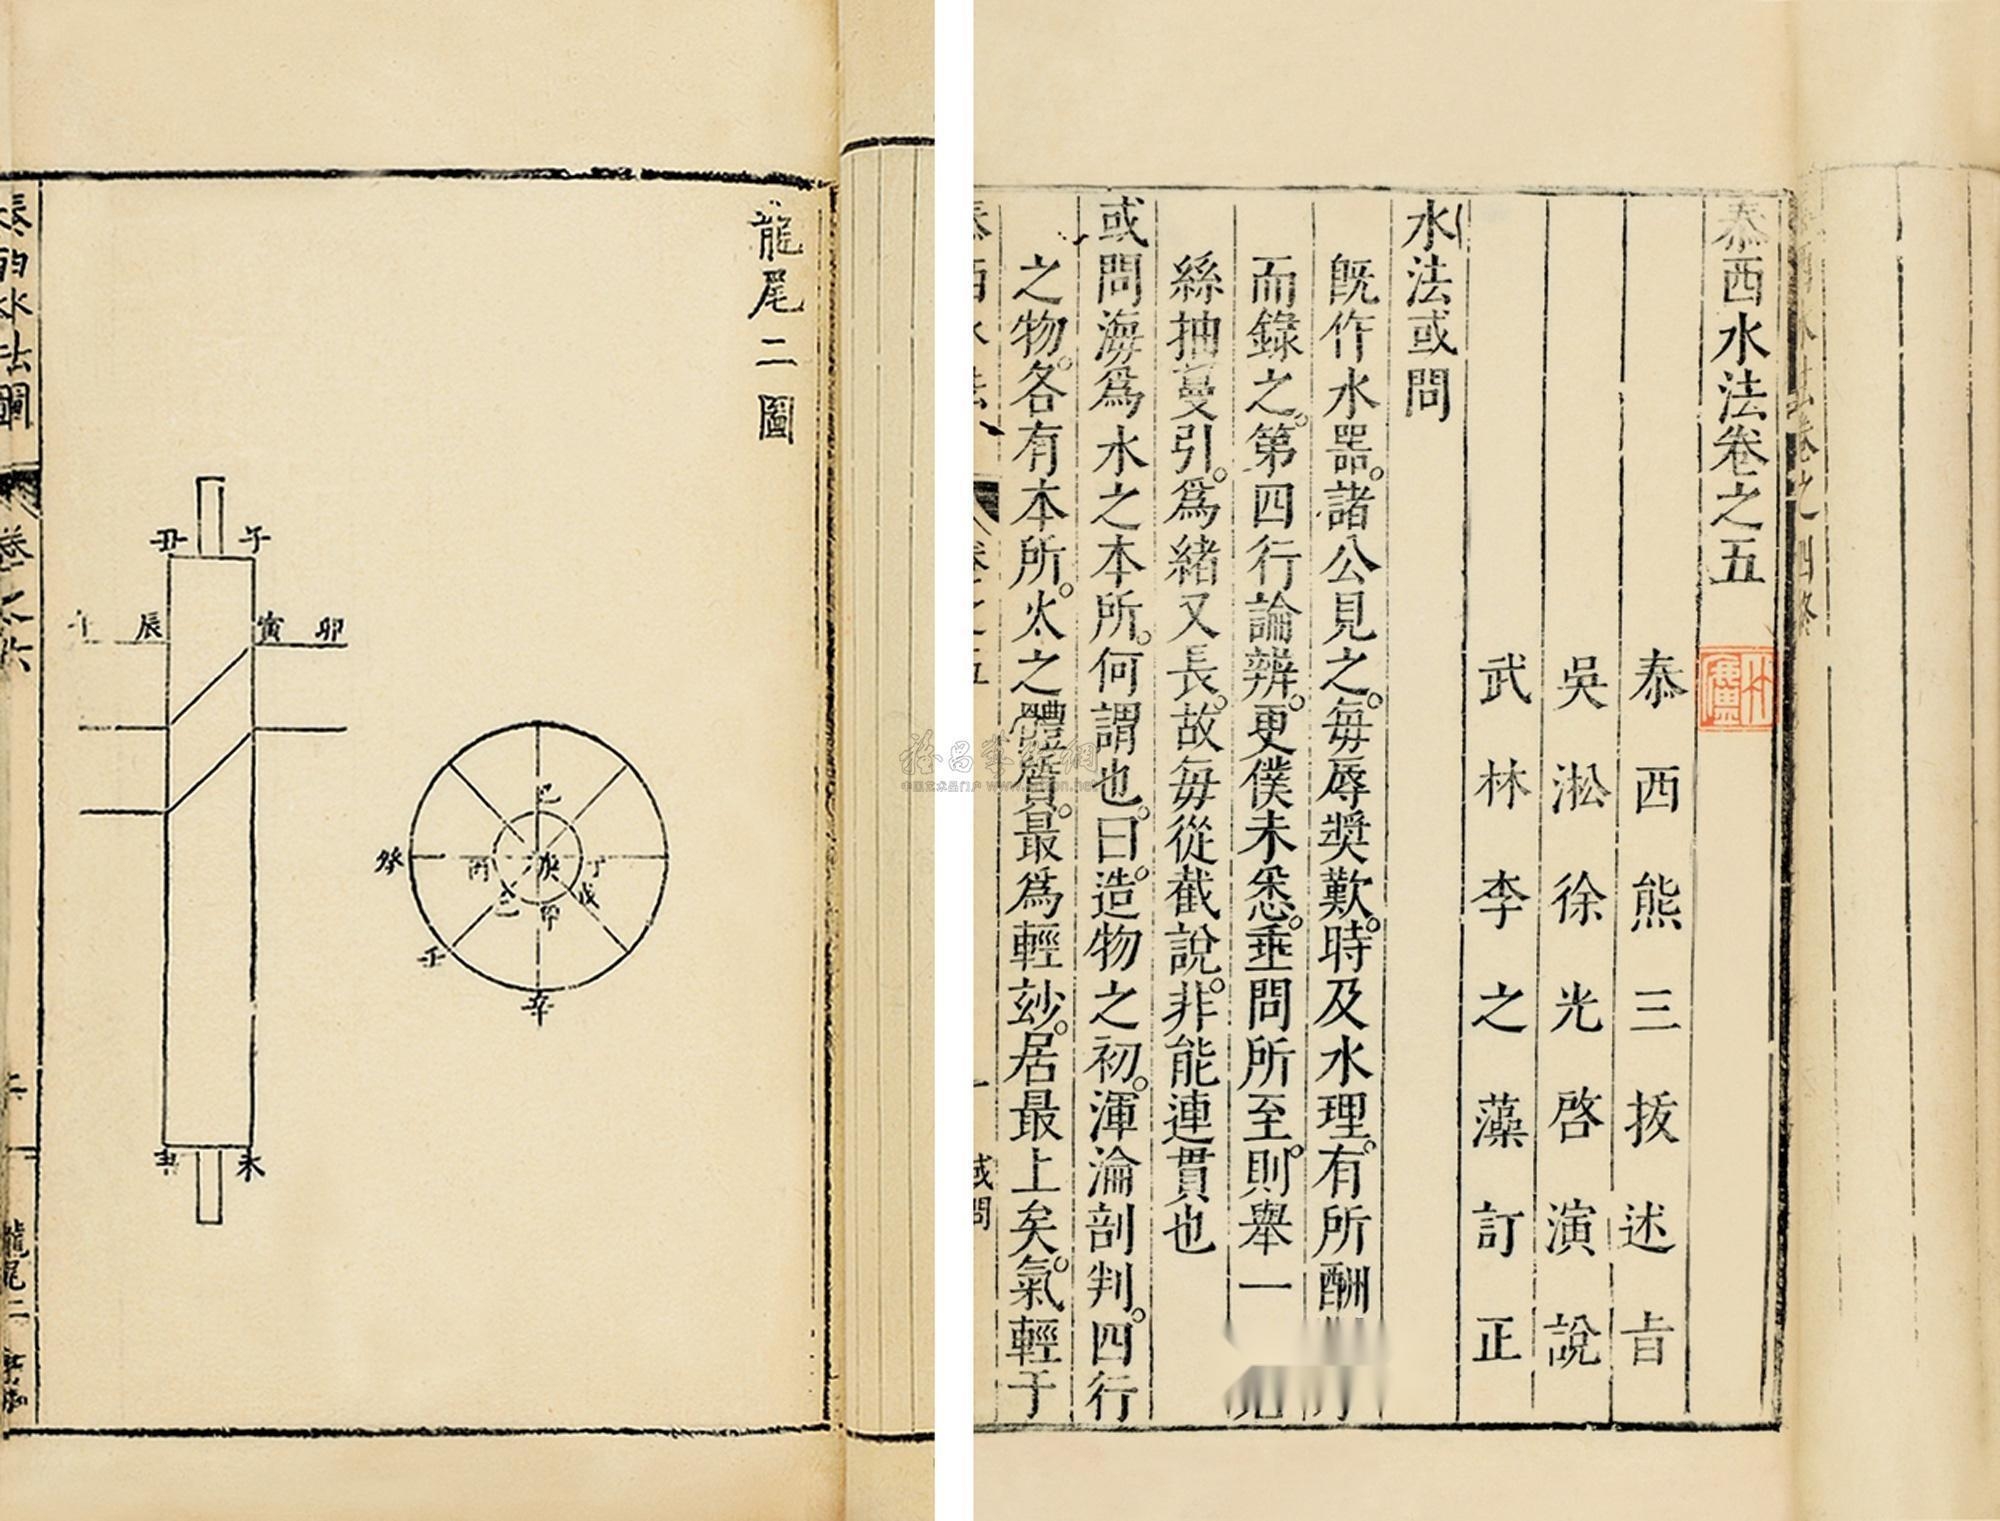 龍尾二圖
丑
午
辰
寅
卯
丑
未
己
癸
丙
庚
丁
戊
乙
壬
辛
泰西水法圖
卷之六
龍尾二
泰西水法卷之五
泰西熊三拔述旨
吳淞徐光啓演說
武林李之藻訂正
水法或問
旣作水器。諸公見之。每辱獎歎。時及水理。有所酬
而錄之。第四行論辨。更僕未悉。垂問所至。則舉一
絲抽蔓引。爲緒又長。故每從截說。非能連貫也
或問海爲水之本所。何謂也。曰。造物之初。渾淪剖判。四行
之物。各有本所。火之體質。最爲輕玅。居最上矣。氣輕于
泰西水法
卷之五
一
或問